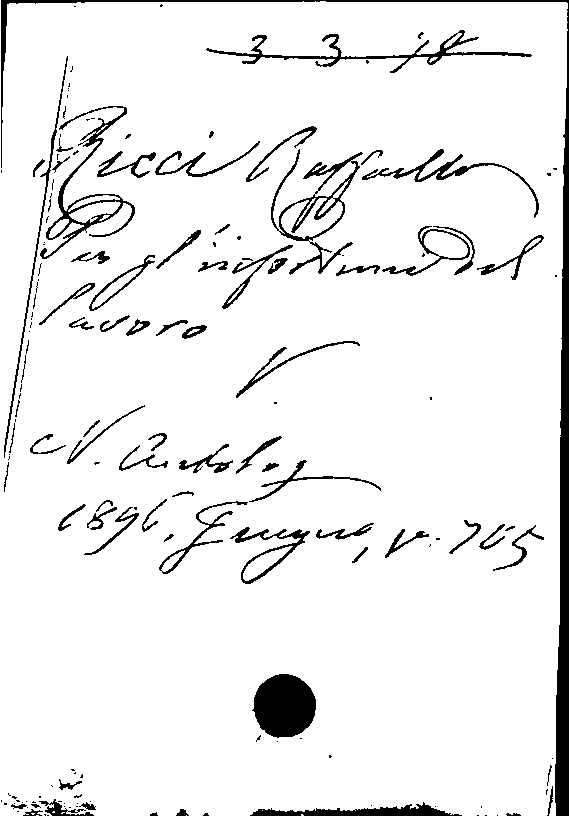 3. 3. 18
Ricci Raffaello
Per gl'infortuni del
lavoro
V
N. Antolog
1896, Giugno, p. 705